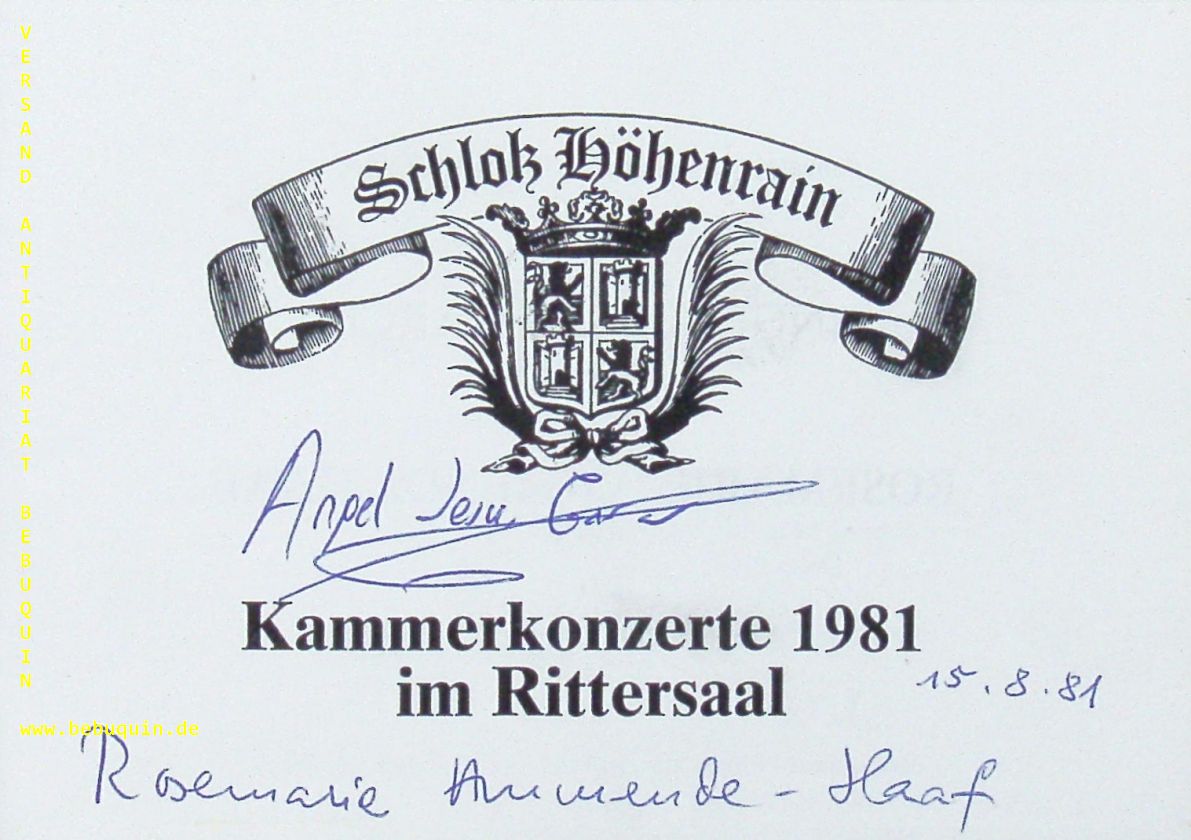 Schloß Höhenrain
Angel Jesus
Kammerkonzerte 1981
im Rittersaal
15.8.81
Rosemarie Ammende-Haaf
VERSAND ANTIQUARIAT BEBUQUIN
www.bebuquin.de